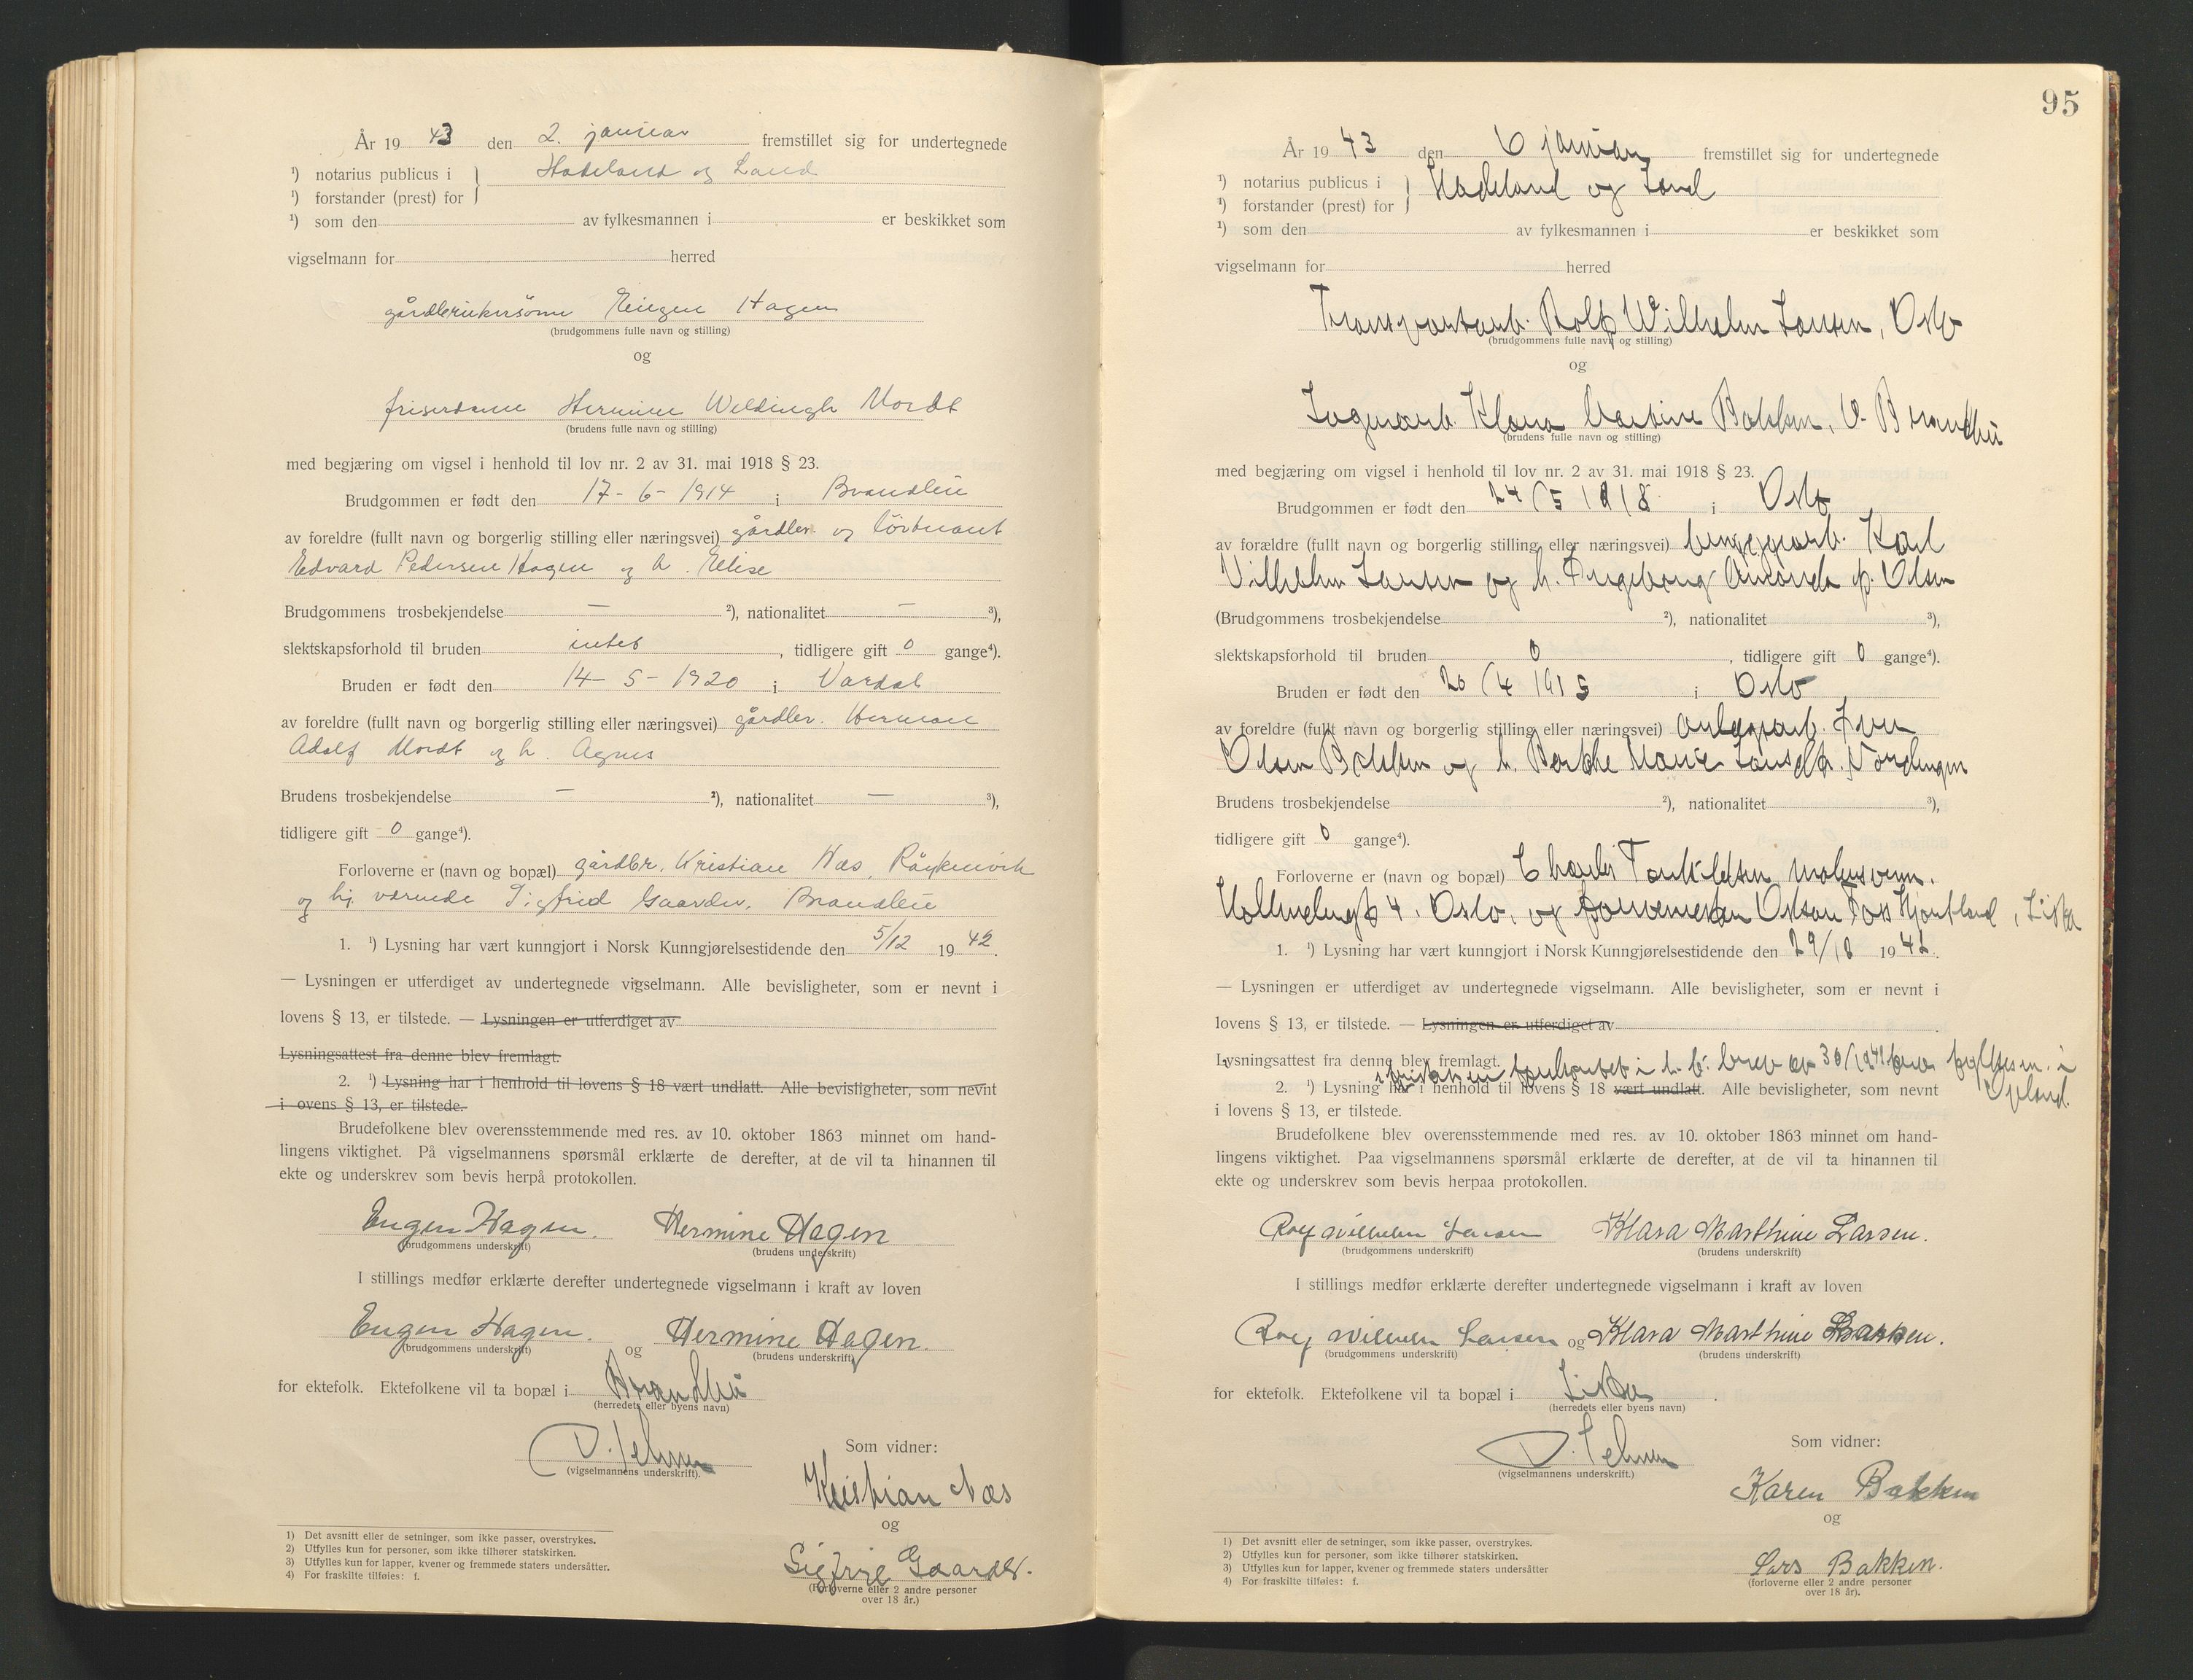 År 19 43 den 2. januar fremstillet sig for undertegnede
¹) notarius publicus i } Hadeland og Land
¹) forstander (prest) for
¹) som den av fylkesmannen i er beskikket som
vigselmann for herred
Eugen Hagen
(brudgommens fulle navn og stilling)
og
friserdame Hermine Weldingh Mordt
(brudens fulle navn og stilling)
med begjæring om vigsel i henhold til lov nr. 2 av 31. mai 1918 § 23.
Brudgommen er født den 17-6-1914 i Brandbu
av foreldre (fullt navn og borgerlig stilling eller næringsvei) gårdbr. og
Edvard Pedersen Hagen og h. Elise
Brudgommens trosbekjendelse — ²), nationalitet — ³),
slektskapsforhold til bruden intet, tidligere gift 0 gange⁴).
Bruden er født den 14-5-1920 i Vardal
av foreldre (fullt navn og borgerlig stilling eller næringsvei) gårdbr. Herman
Adolf Mordt og h. Agnes
Brudens trosbekjendelse — ²), nationalitet — ³),
tidligere gift 0 gange⁴).
Forloverne er (navn og bopæl) gårdbr. Kristian Næs, Røykenvik
og hj. værende Sigfrid Gaarder, Brandbu
1. ¹) Lysning har vært kunngjort i Norsk Kunngjørelsestidende den 5/12 1942.
— Lysningen er utferdiget av undertegnede vigselmann. Alle bevisligheter, som er nevnt i
lovens § 13, er tilstede. — Lysningen er utferdiget av
Lysningsattest fra denne blev fremlagt.
2. ¹) Lysning har i henhold til lovens § 18 vært undlatt. Alle bevisligheter, som nevnt
i ovens § 13, er tilstede.
Brudefolkene blev overensstemmende med res. av 10. oktober 1863 minnet om hand-
lingens viktighet. På vigselmannens spørsmål erklærte de derefter, at de vil ta hinannen til
ekte og underskrev som bevis herpå protokollen.
Eugen Hagen. Hermine Hagen
(brudgommens underskrift) (brudens underskrift)
I stillings medfør erklærte derefter undertegnede vigselmann i kraft av loven
Eugen Hagen. og Hermine Hagen.
(brudgommens underskrift) (brudens underskrift)
for ektefolk. Ektefolkene vil ta bopæl i Brandbu
(herredets eller byens navn)
(vigselmannens underskrift).
Som vidner:
Kristian Næs
og
Sigfrid Gaarder.
(Forloverne eller 2 andre personer
over 18 år.)
1) Det avsnitt eller de setninger, som ikke passer, overstrykes.
2) Utfylles kun for personer, som ikke tilhører statskirken.
3) Utfylles kun for lapper, kvener og fremmede staters undersåtter.
4) For fraskilte tilføies: f.
95
År 19 43 den 6 januar fremstillet sig for undertegnede
¹) notarius publicus i } Hadeland og Land
¹) forstander (prest) for
¹) som den av fylkesmannen i er beskikket som
vigselmann for herred
Transportarb. Rolf Wilhelm Larsen, Oslo
(brudgommens fulle navn og stilling)
og
Klara Martine Bakken, V. Brandbu
(brudens fulle navn og stilling)
med begjæring om vigsel i henhold til lov nr. 2 av 31. mai 1918 § 23.
Brudgommen er født den 24/5 1918 i Oslo
av forældre (fullt navn og borgerlig stilling eller næringsvei) bryggearb. Karl
Vilhelm Larsen og h. Ingeborg Amanda f. Olsen
(Brudgommens trosbekjendelse ²), nationalitet ³),
slektskapsforhold til bruden 0, tidligere gift 0 gange⁴).
Bruden er født den 20/4 1915 i Oslo
av foreldre (fullt navn og borgerlig stilling eller næringsvei) anleggsarb. Iver
Olsen Bakken og h. Marie
Brudens trosbekjendelse ²), nationalitet ³),
tidligere gift 0 gange⁴).
Forloverne er (navn og bopæl) Charles Torkildsen malersvenn.
4. Oslo, og
1. ¹) Lysning har vært kunngjort i Norsk Kunngjørelsestidende den 29/18 1942.
— Lysningen er utferdiget av undertegnede vigselmann. Alle bevisligheter, som er nevnt i
lovens § 13, er tilstede. — Lysningen er utferdiget av
Lysningsattest fra denne blev fremlagt. i Opland.
2. ¹) Lysning har i henhold til lovens § 18 vært undlatt. Alle bevisligheter, som nevnt
i lovens § 13, er tilstede.
Brudefolkene blev overensstemmende med res. av 10. oktober 1863 minnet om hand-
lingens viktighet. Paa vigselmannens spørsmål erklærte de derefter, at de vil ta hinannen til
ekte og underskrev som bevis herpaa protokollen.
Rolf Wilhelm Larsen Klara Marthine Larsen.
(brudgommens underskrift) (brudens underskrift)
I stillings medfør erklærte derefter undertegnede vigselmann i kraft av loven
Rolf Wilhelm Larsen og Klara Marthine
(brudgommens underskrift) (brudens underskrift)
for ektefolk. Ektefolkene vil ta bopæl i
(herredets eller byens navn)
(vigselmannens underskrift.)
Som vidner:
Karen Bakken
og
Lars Bakken.
(forloverne eller 2 andre personer
over 18 år).
1) Det avsnitt eller de setninger, som ikke passer, overstrykes.
2) Utfylles kun for personer, som ikke tilhører statskirken.
3) Utfylles kun for lapper, kvener og fremmede staters undersåtter
4) For fraskilte tilføies: f.